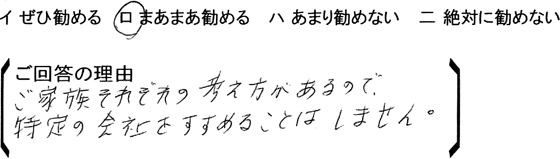 イ ぜひ勧める ロ まあまあ勧める ハ あまり勧めない ニ 絶対に勧めない
ご回答の理由
ご家族それぞれの考え方があるので、
特定の会社をすすめることはしません。